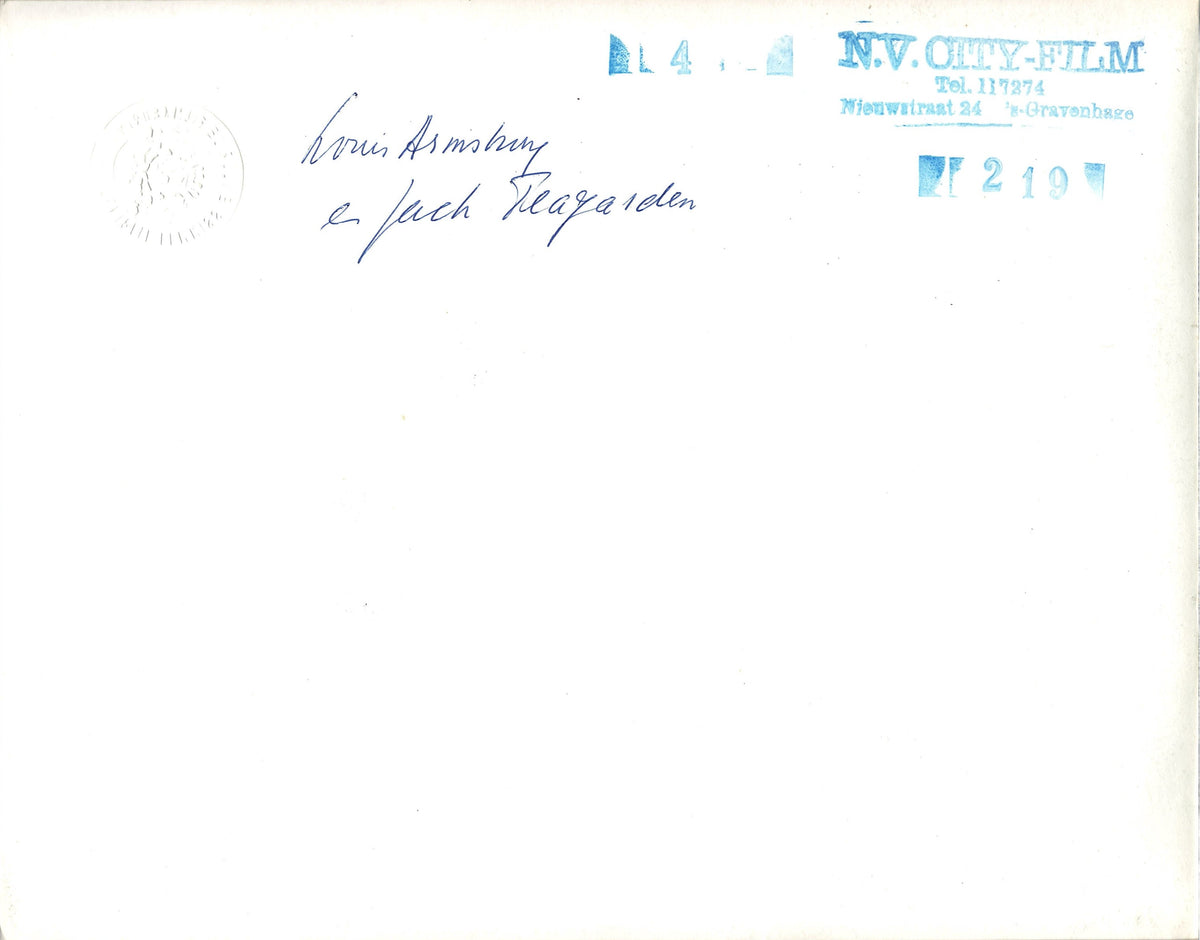 4
N.V. CITY-FILM
Tel. 117274
Nieuwstraat 24 's-Gravenhage
219
Louis Armstrong
en Jack Teagarden